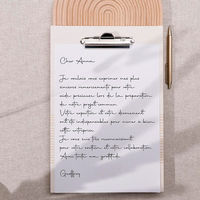 Cher Anna,
Je voulais vous exprimer mes plus
sincères remerciements pour votre
aide précieuse lors de la préparation
de notre projet commun.
Votre expertise et votre dévouement
ont été indispensables pour mener à bien
cette entreprise.
Je vous suis très reconnaissant
pour votre soutien et votre collaboration.
Avec toute ma gratitude,
Geoffroy